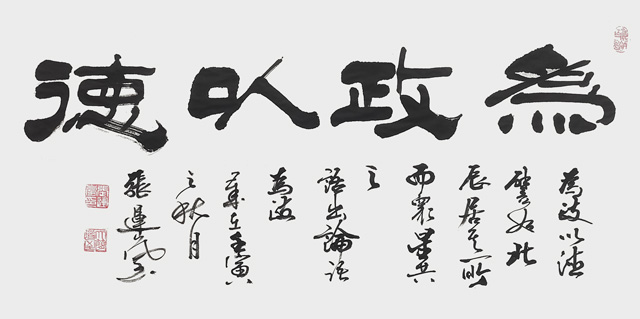 為政以德
為政以德
譬如北
辰居其所
而眾星共
之
語出論語
為政
歲在
之秋月
張運